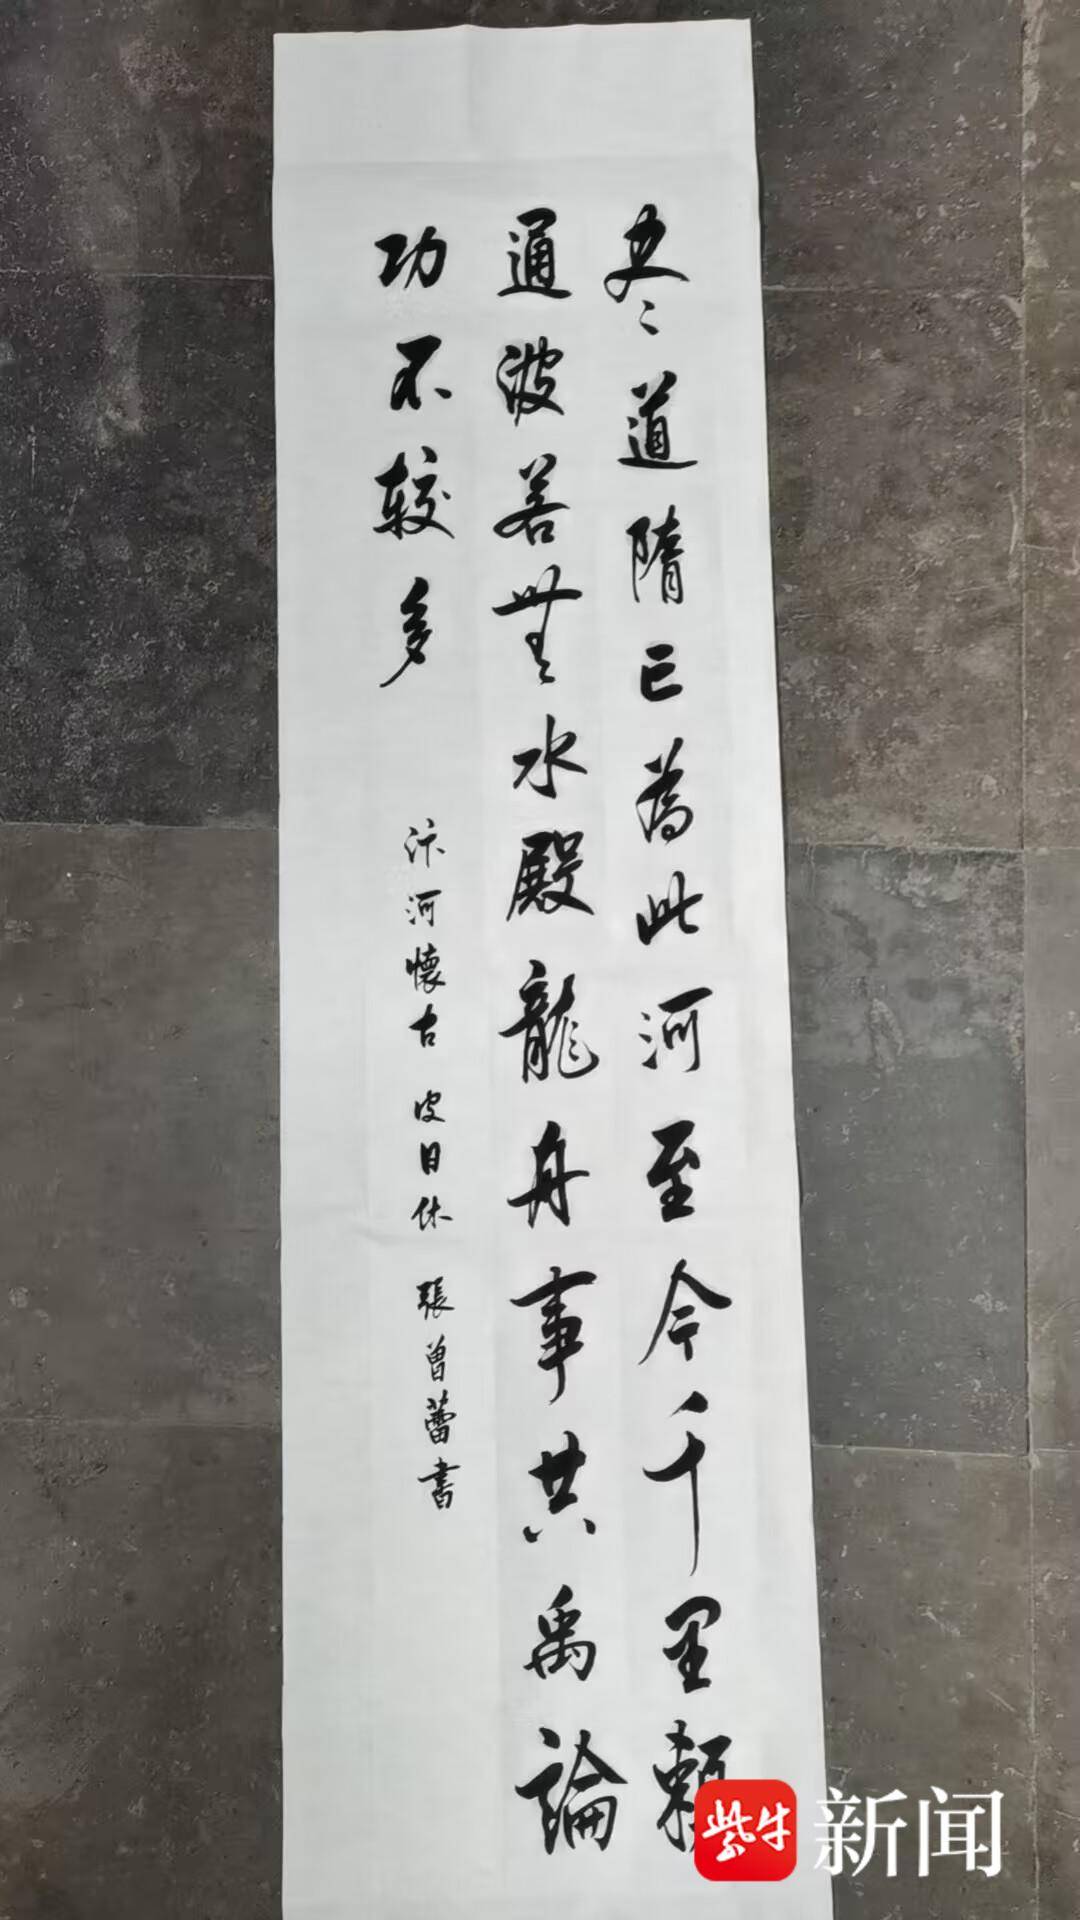 尽道隋已为此河至今千里赖
通波若无水殿龍舟事共禹論
功不较多
汴河懷古 皮日休 張曾蕾書
紫牛新闻